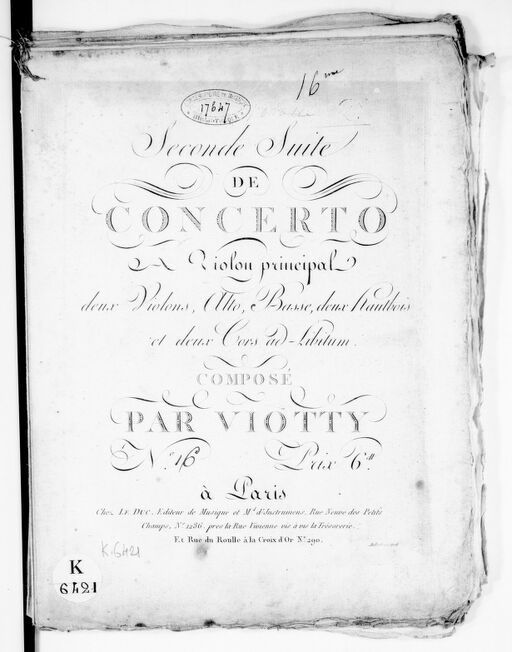 16me
17647
Seconde Suite
DE
CONCERTO
A Violon principal
deux Violons, Alto, Basse, deux Hautbois
et deux Cors ad-Libitum.
COMPOSÉ
PAR VIOTTY
N.º 16 Prix 6.tt
à Paris
Chez LE DUC, Editeur de Musique et M.d d'Instrumens, Rue Neuve des Petits
Champs, N.º 1286, pres la Rue Vivienne vis à vis la Trésorerie.
Et Rue du Roulle à la Croix d'Or N.º 290.
K.6421
K
6421